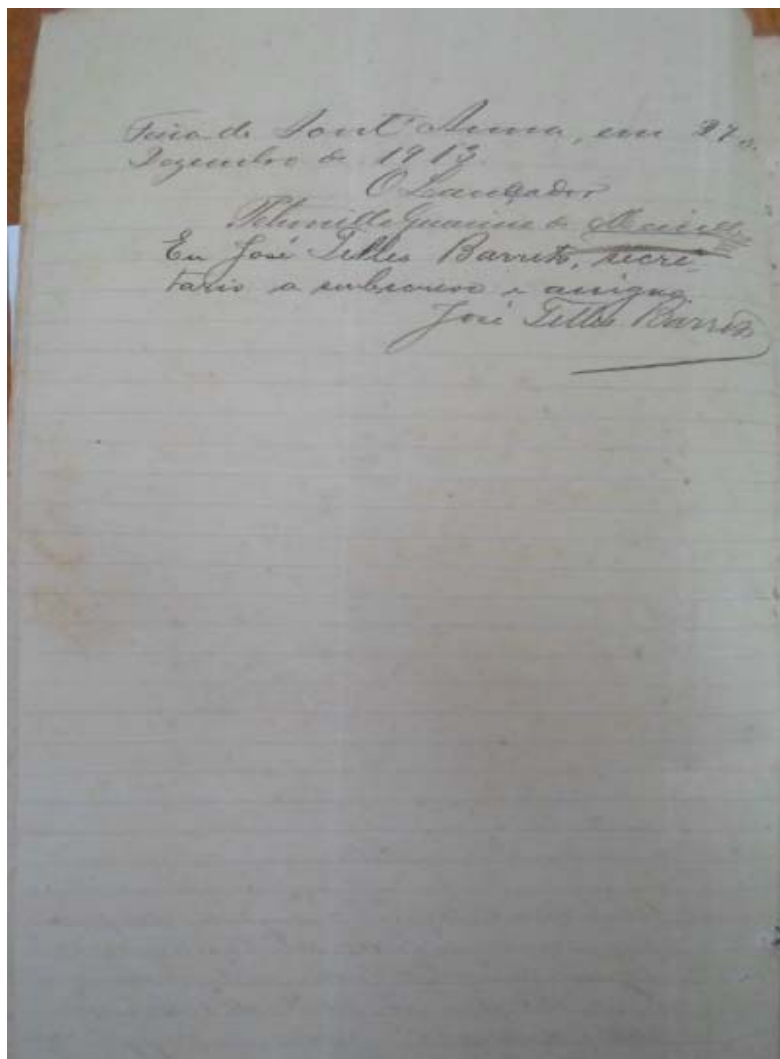 Feira de Sant'Anna, em 27 de
Dezembro de 1913.
O Lançador
de
Eu José Telles Barreto, secre-
tario a subscrevo e assigno
José Telles Barreto